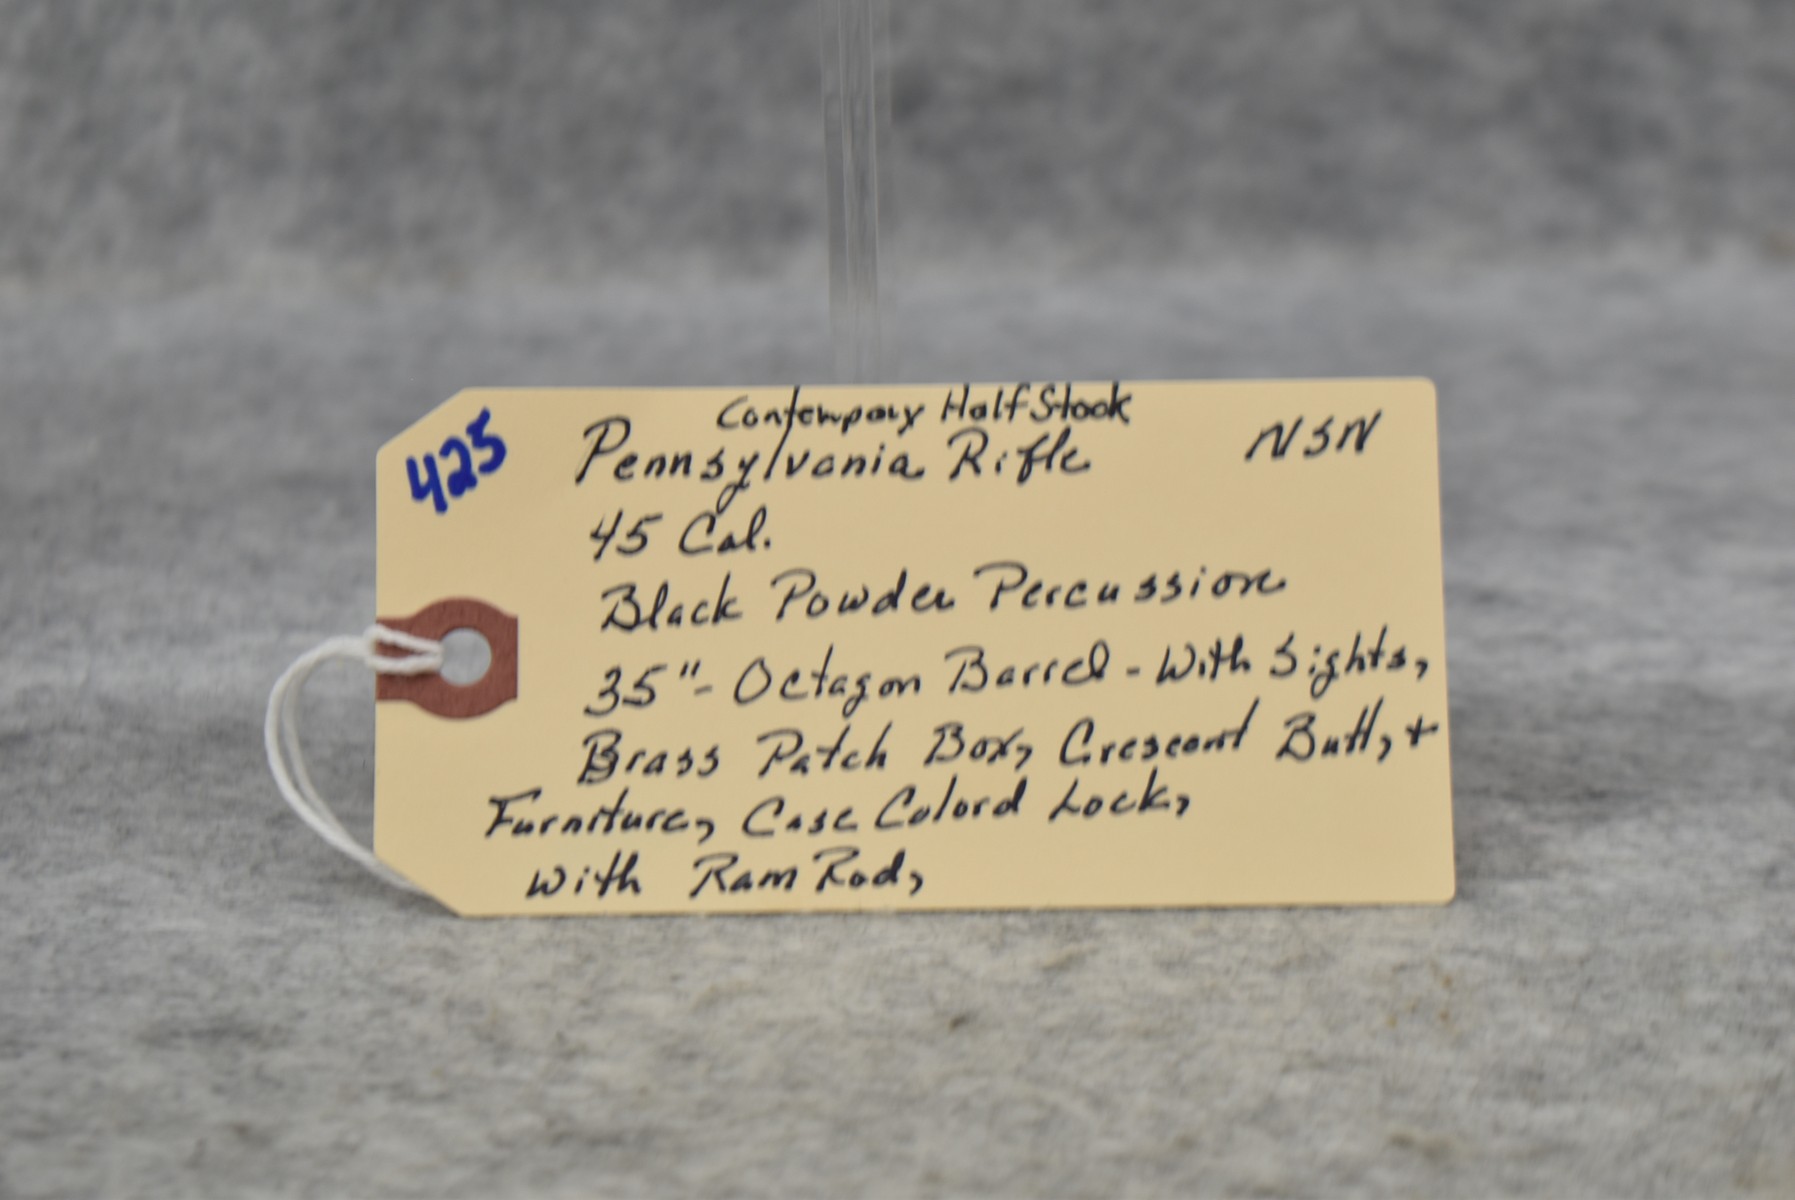 425
Contempory Half Stock
Pennsylvania Rifle
NSN
45 Cal.
Black Powder Percussion
35"- Octagon Barrel - With Sights,
Brass Patch Box, Crescent Butt, +
Furniture, Case Colord Lock,
With Ram Rod,